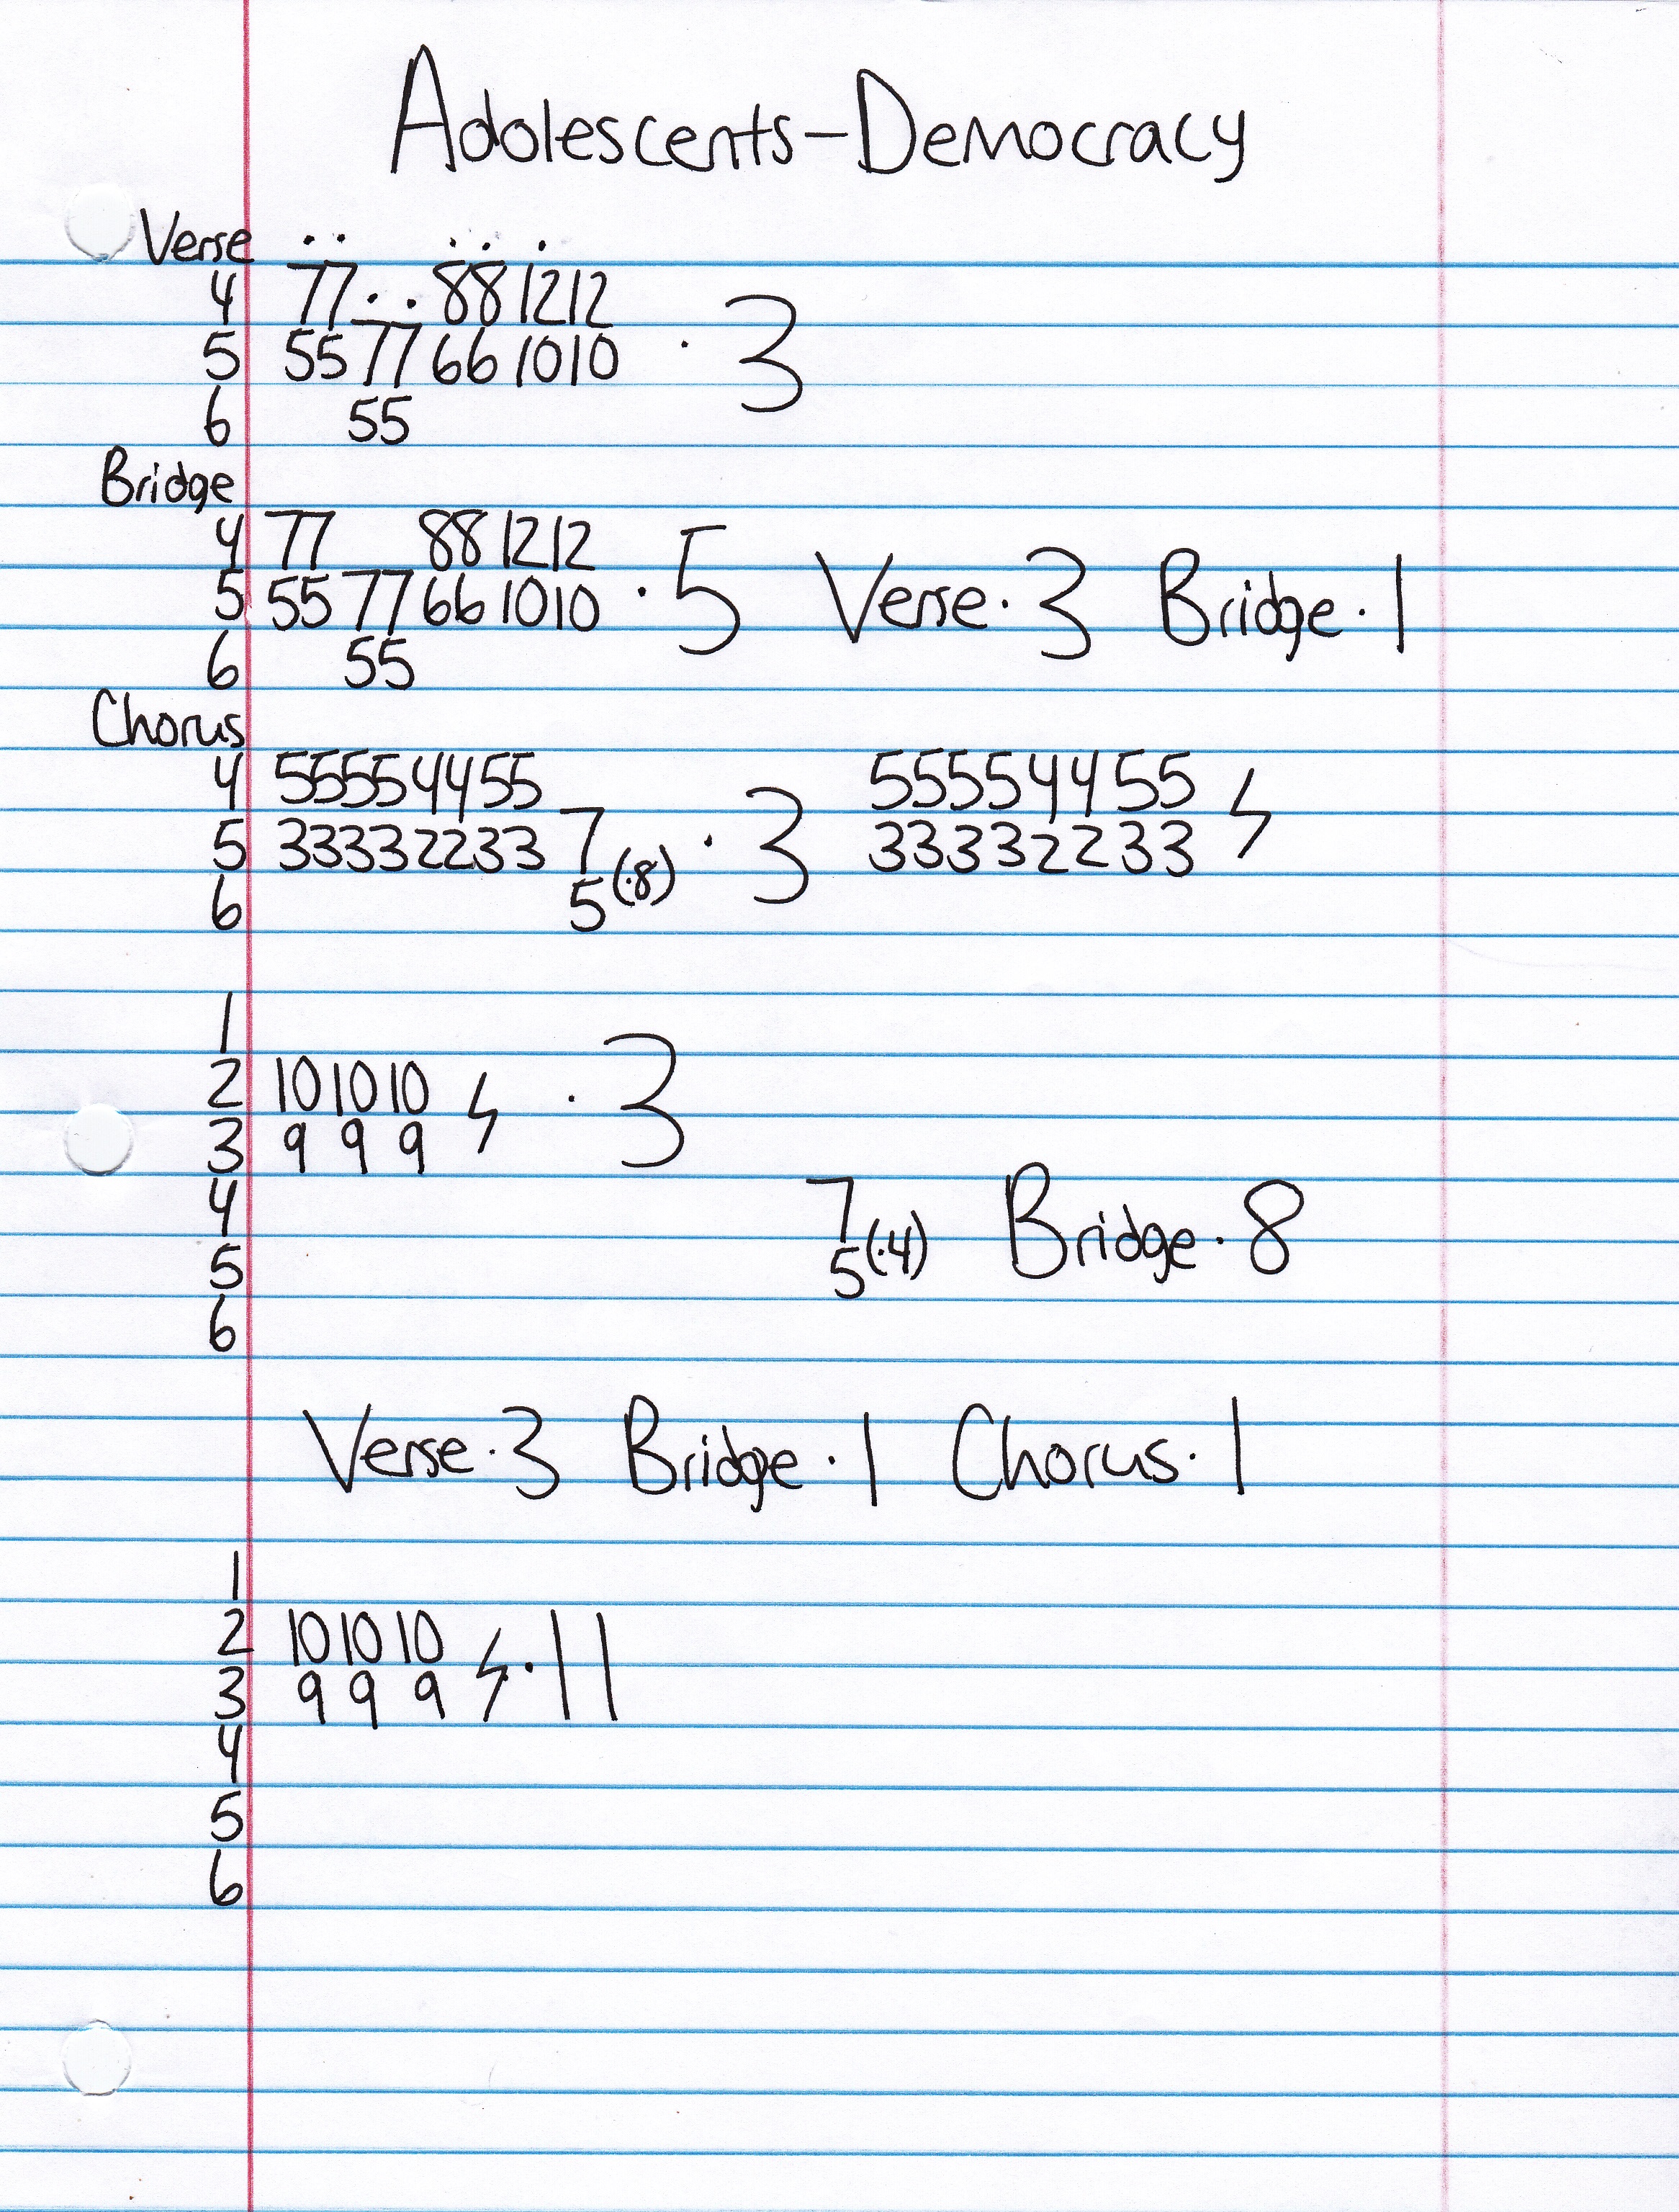 Adolescents-Democracy
Verse . . . . .
4 77 . . 88 12 12
5 55 77 66 10 10 · 3
6 55
Bridge
4 77 88 12 12
5 55 77 66 10 10 · 5 Verse · 3 Bridge · 1
6 55
Chorus
4 55554455 55554455
5 33332233 7 (·8) · 3 33332233
6 5
1
2 10 10 10
3 9 9 9 · 3
4 7
5 5 (·4) Bridge · 8
6
Verse · 3 Bridge · 1 Chorus · 1
1
2 10 10 10
3 9 9 9 · 11
4
5
6